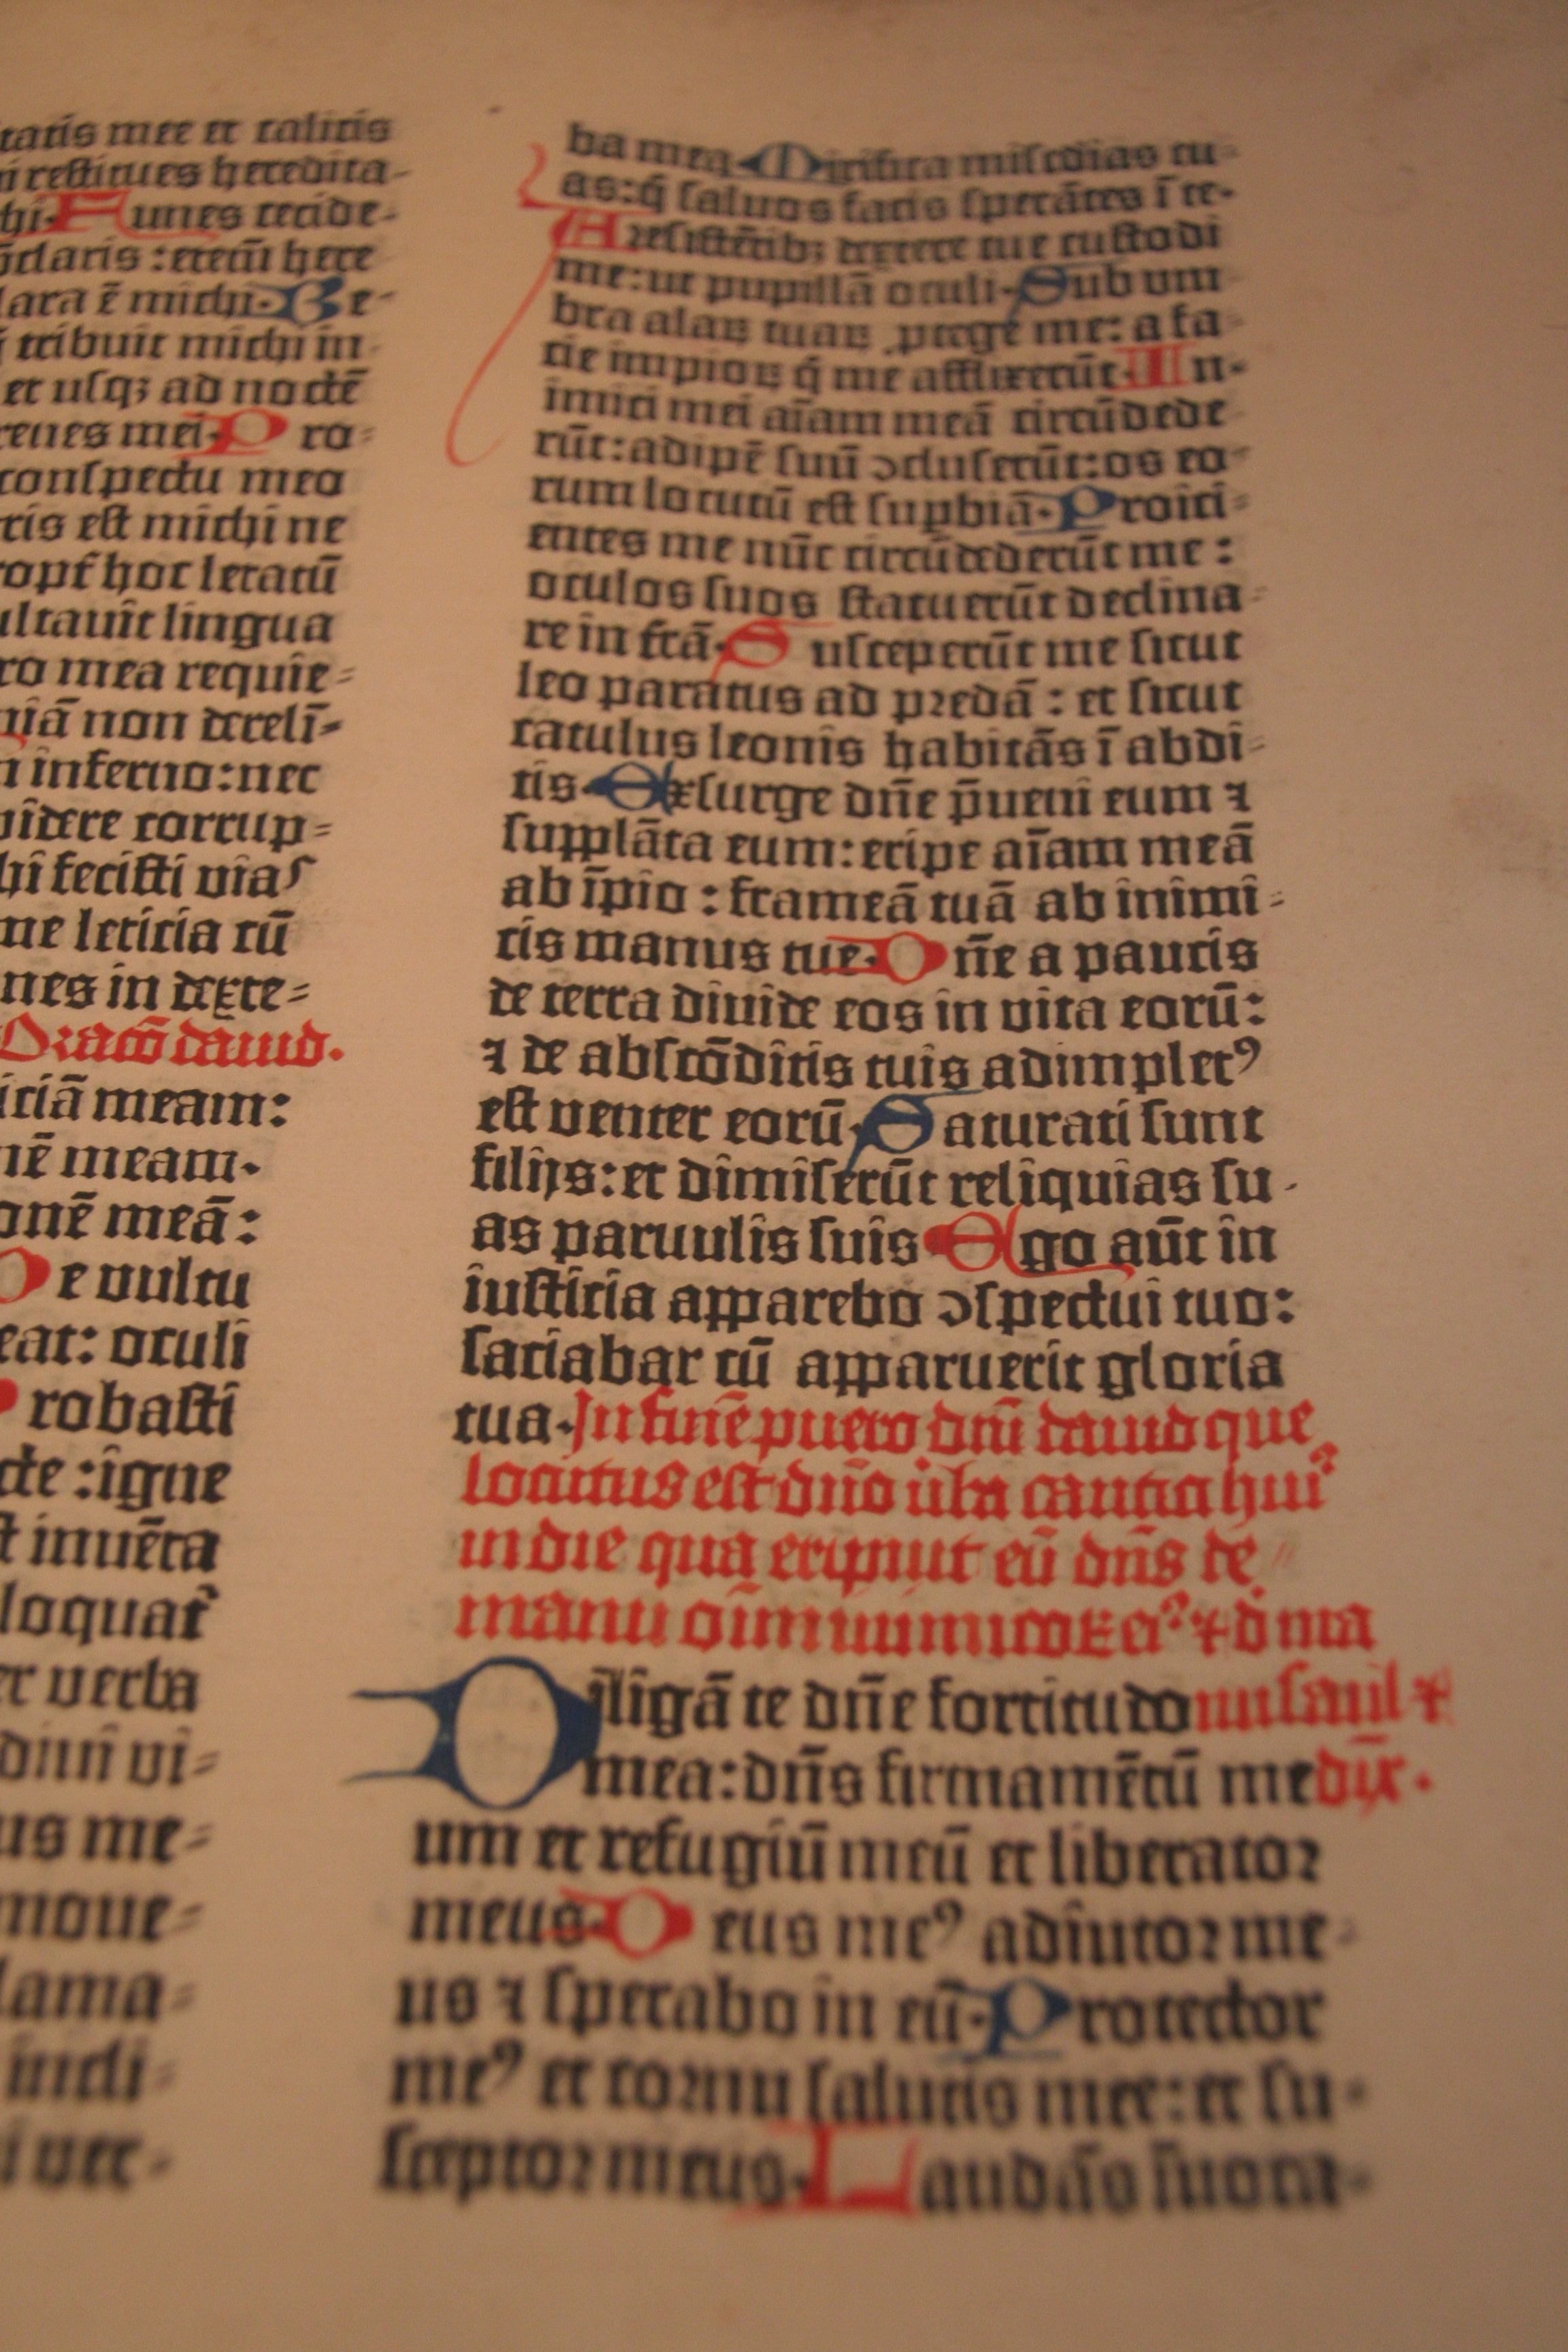 tatis mee et calicis
restitues heredita-
hi. Funes cecide-
claris : etem̄ here
lara ē michi. Be-
tribuit michi in-
et usq; ad noctē
renes mei. Pro-
conspectu meo
tris est michi ne
hoc letatū
ultauit lingua
ro mea requie-
niā non derelī-
inferno: nec
videre corrup-
hi fecisti vias
me leticia cū
nes in dexte-
Oraco᷑ dauid.
iciā meam:
nē meam.
onē meā:
De vultu
eat: oculi
Probasti
cte : igne
inuēta
loquat᷑
verba
vi-
us me-
moue-
lama-
incli-
ver-
ba mea. Mirifica mis̄cdias tu-
as: q̄ saluos facis sperātes ī te.
A resistētibꝫ dextere tue custodi
me: ut pupillā oculi. Sub um
bra alaꝝ tuaꝝ ꝓtege me: a fa-
cie impioꝝ q̄ me afflixerūt. In-
imici mei aīam meā circūdede
rūt: adipē suū ɔcluserūt: os eo-
rum locutū est suꝑbiā. Proici-
entes me nūc circūdederūt me :
oculos suos statuerūt declina-
re in tr̄ā. Susceperūt me sicut
leo paratus ad predā : et sicut
catulus leonis habitās ī abdi-
tis. Exsurge dn̄e p̄ueni eum ⁊
supplāta eum: eripe aīam meā
ab īpio : frameā tuā ab inimi-
cis manus tue. Dn̄e a paucis
de terra diuide eos in vita eorū:
⁊ de abscōditis tuis adimpletꝰ
est venter eorū. Saturati sunt
filijs: et dimiserūt reliquias su-
as paruulis suis Ego aūt in
iusticia apparebo ɔspectui tuo:
saciabar cū apparuerit gloria
tua. In finē puero dn̄i dauid que
locutus est dn̄o v̄ba cantici huiꝰ
in die qua eripuit eū dn̄s de
manu oīm inimicoꝝ eiꝰ ⁊ d ma
Diligā te dn̄e fortitudo nu saul ⁊
mea: dn̄s firmamētū me dix̄.
um et refugiū meū et liberator
meus. Deus meꝰ adiutor me-
us ⁊ sperabo in eū. Protector
meꝰ et cornu salutis mee: et su-
sceptor meus. Laudās īuoca-